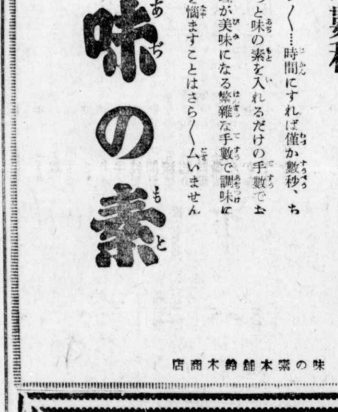 く〱…時間にすれば僅か數秒、ち
つと味の素を入れるだけの手數でお
が美味になる繁雜な手數で調味に
を惱ますことはさら〱ムいません
味の素
味の素本舗鈴木商店